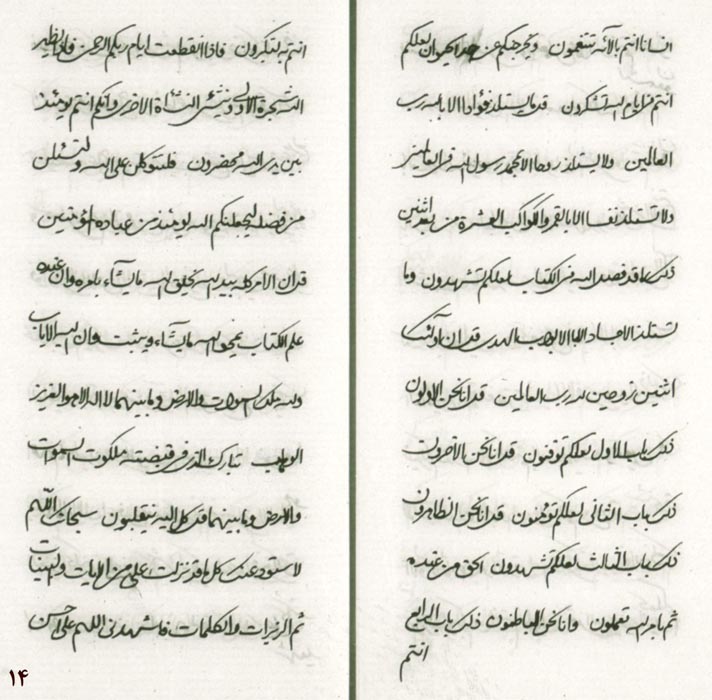 انسانا انتم بالآئه تتنعمون و يخرجنكم عن حد الحيوان لعلكم
انتم من ايام الله تشكرون قد ما يستلذ فؤادا الا بالله رب
العالمين ولا يستلذ روحا الا بمحمد رسول الله فى العالمين
ولا تستلذ نفسا الا بالقمر والكواكب العشرة من بعد اثنين
ذلك ما قد فصل الله فى الكتاب لعلكم تشهدون وما
تستلذ الاجساد الا بالابواب الهدى قد ان اولئك
اثنين زوجين لله رب العالمين قد انا نحن الاولون
ذلك باب الاول لعلكم توقنون قد انا نحن الآخرون
ذلك باب الثانى لعلكم تؤمنون قد انا نحن الظاهرون
ذلك باب الثالث لعلكم تشهدون الحق من عنده
ثم بامر الله تعملون وانا نحن الباطنون ذلك باب الرابع
انتم
انتم به لتذكرون فاذا انقطعت ايام ربكم الرحمن فاذا يظهر
الشجرة الاولى و ينشئ النشأة الاخرى و انكم انتم يومئذ
بين يدى الله محضرون فلتتوكلن على الله ولتسئلن
من فضله ليجعلنكم الله يومئذ من عباده المؤمنين
قد ان الامر كله بيد الله يخلق الله ما يشآء بامره وان عنده
علم الكتاب يمحو الله ما يشآء و يثبت وان اليه الاياب
ولله ملك السموات والارض وما بينهما لا اله الا هو العزيز
الوهاب تبارك الذى فى قبضته ملكوت السموات
والارض وما بينهما قد كل اليه ينقلبون سبحانك اللهم
لاستودعنك كل ما قد نزلت على من الايات والبينات
ثم الزبرات والكلمات فاشهدنى اللهم على احسن
١٤